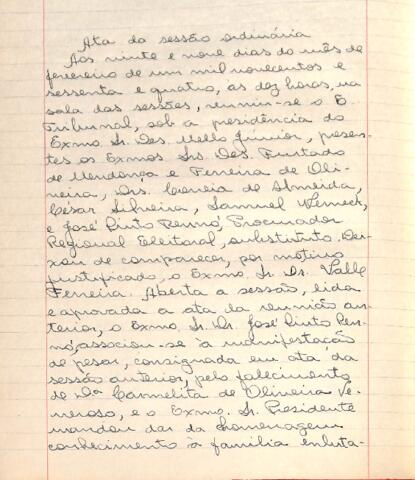 Ata da sessão ordinária
Aos vinte e nove dias do mês de
fevereiro de um mil novecentos e
sessenta e quatro, as dez horas, na
sala das sessões, reuniu-se o E.
Tribunal, sob a presidência do
Exmo. Sr. Des. Mello Júnior, presen-
tes os Exmos. Srs. Des. Furtado
de Mendonça e Ferreira de Oli-
veira, Drs. Correia de Almeida,
César Silveira, Samuel Werneck,
e José Pinto Rennó, Procurador
Regional Eleitoral, substituto. Dei-
xou de comparecer, por motivo
justificado, o Exmo. Sr. Dr. Valle
Ferreira. Aberta a sessão, lida
e aprovada a ata da reunião an-
terior, o Exmo. Sr. Dr. José Pinto Ren-
nó, associou-se à manifestação
de pesar, consignada em ata da
sessão anterior, pelo falecimento
de Dª Carmelita de Oliveira Ve-
neroso, e o Exmo. Sr. Presidente
mandou dar da homenagem
conhecimento à família enluta-